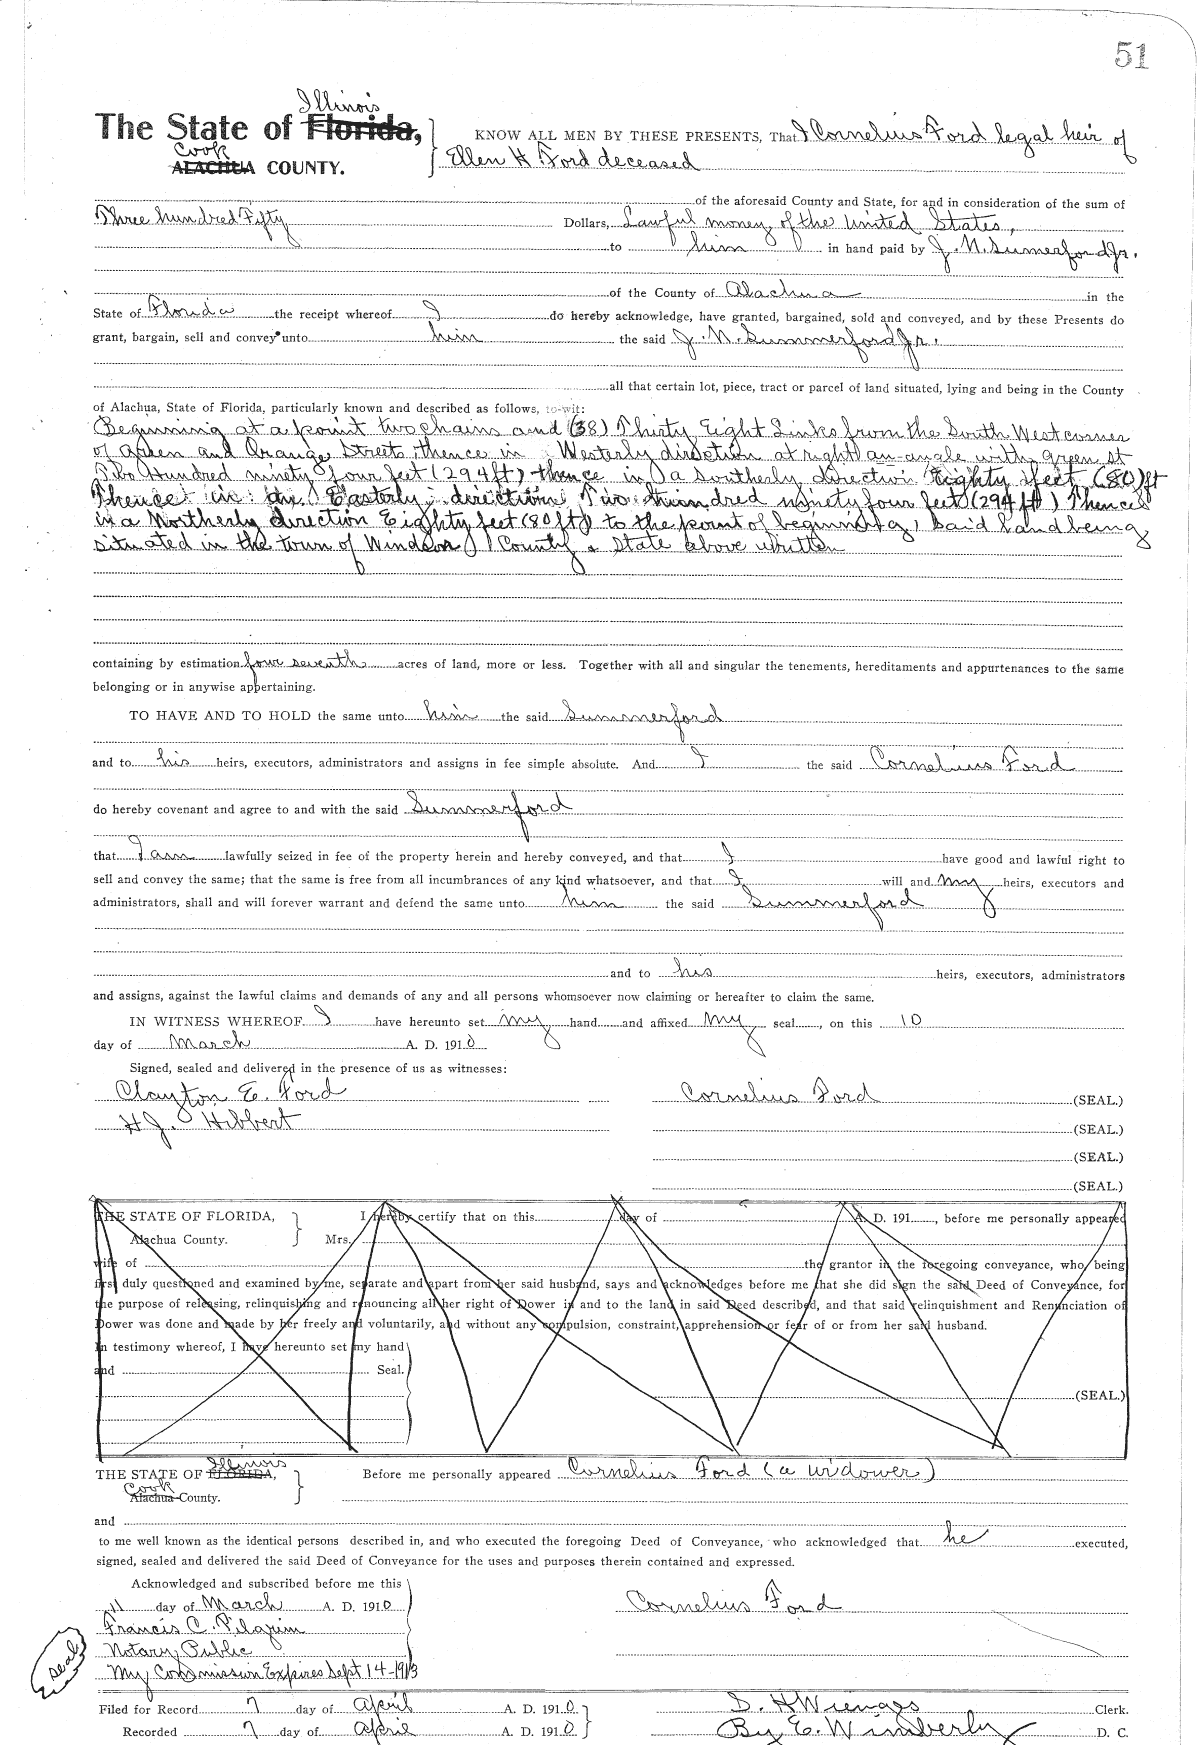 51
Illinois
The State of Florida,
Cook
ALACHUA COUNTY.
KNOW ALL MEN BY THESE PRESENTS, That I Cornelius Ford legal heir of
Ellen H Ford deceased
of the aforesaid County and State, for and in consideration of the sum of
Three hundred Fifty Dollars, Lawful money of the United States,
to him in hand paid by J. N. Sumerford Jr.
of the County of Alachua in the
State of Florida the receipt whereof I do hereby acknowledge, have granted, bargained, sold and conveyed, and by these Presents do
grant, bargain, sell and convey unto him the said J. N. Summerford Jr.
all that certain lot, piece, tract or parcel of land situated, lying and being in the County
of Alachua, State of Florida, particularly known and described as follows, to-wit:
Beginning at a point two chains and (38) Thirty Eight Links from the South West corner
of Green and Orange Streets thence in Westerly direction at right an angle with Green St
Two Hundred ninety four feet (294 ft) thence in a Southerly direction Eighty feet (80) ft
Thence in an Easterly direction Two Hundred ninety four feet (294 ft) Thence
in a Northerly direction Eighty feet (80 ft) to the point of beginning, Said land being
situated in the town of Windsor County & State above written
containing by estimation four seventh acres of land, more or less. Together with all and singular the tenements, hereditaments and appurtenances to the same
belonging or in anywise appertaining.
TO HAVE AND TO HOLD the same unto him the said Summerford
and to his heirs, executors, administrators and assigns in fee simple absolute. And I the said Cornelius Ford
do hereby covenant and agree to and with the said Summerford
that I am lawfully seized in fee of the property herein and hereby conveyed, and that I have good and lawful right to
sell and convey the same; that the same is free from all incumbrances of any kind whatsoever, and that I will and my heirs, executors and
administrators, shall and will forever warrant and defend the same unto him the said Summerford
and to his heirs, executors, administrators
and assigns, against the lawful claims and demands of any and all persons whomsoever now claiming or hereafter to claim the same.
IN WITNESS WHEREOF I have hereunto set my hand and affixed my seal, on this 10
day of March A. D. 1910
Signed, sealed and delivered in the presence of us as witnesses:
Clayton E. Ford Cornelius Ford (SEAL.)
H J. Hibbert (SEAL.)
(SEAL.)
(SEAL.)
THE STATE OF FLORIDA,
Alachua County.
I hereby certify that on this day of A. D. 191 , before me personally appeared
Mrs.
wife of the grantor in the foregoing conveyance, who being
first duly questioned and examined by me, separate and apart from her said husband, says and acknowledges before me that she did sign the said Deed of Conveyance, for
the purpose of releasing, relinquishing and renouncing all her right of Dower in and to the land in said Deed described, and that said relinquishment and Renunciation of
Dower was done and made by her freely and voluntarily, and without any compulsion, constraint, apprehension or fear of or from her said husband.
In testimony whereof, I have hereunto set my hand
and Seal.
(SEAL.)
Illinois
THE STATE OF FLORIDA,
Cook
Alachua County.
Before me personally appeared Cornelius Ford (a widower)
and
to me well known as the identical persons described in, and who executed the foregoing Deed of Conveyance, who acknowledged that he executed,
signed, sealed and delivered the said Deed of Conveyance for the uses and purposes therein contained and expressed.
Acknowledged and subscribed before me this
11 day of March A. D. 1910 Cornelius Ford
Francis C. Pilgrim
Notary Public
seal
My Commission Expires Sept 14-1913
Filed for Record 7 day of April A. D. 1910 D. H Wienges Clerk.
Recorded 7 day of April A. D. 1910 By E. Wimberly D. C.